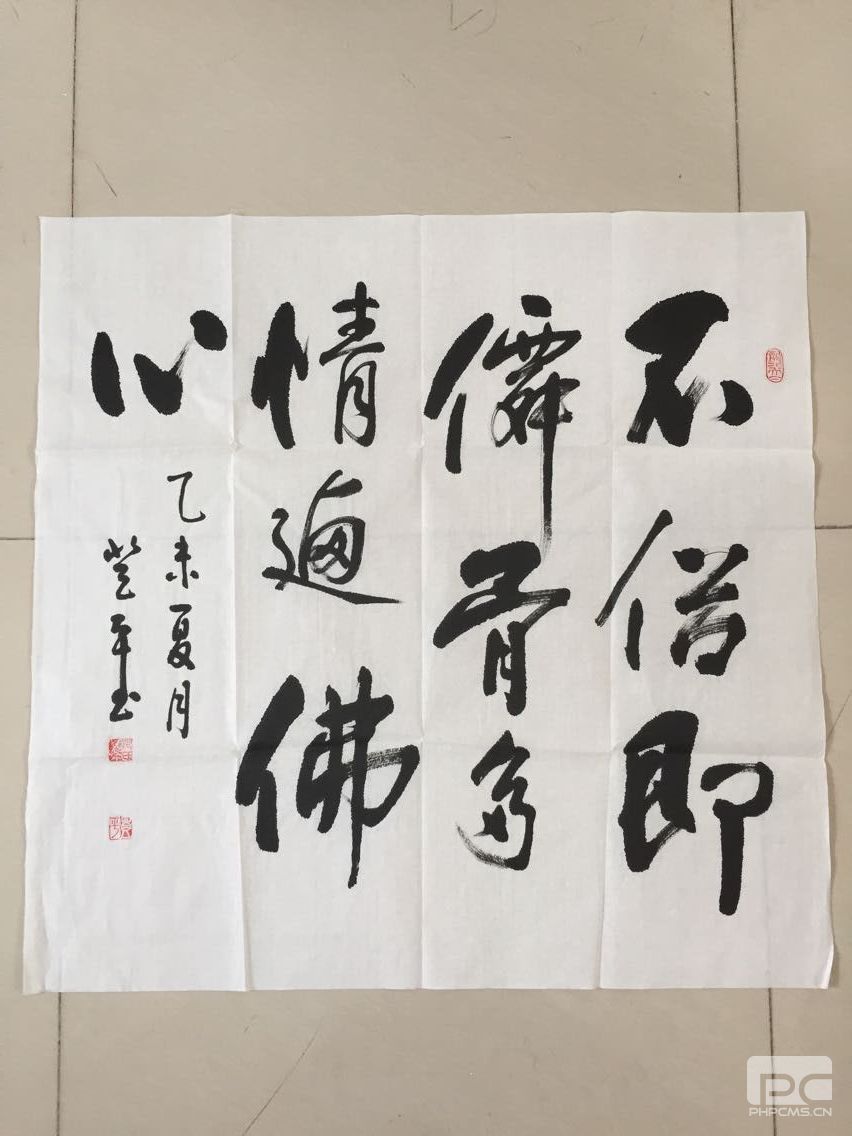 不俗即
僊骨多
情廼佛
心
乙未夏月
平书
PC
PHPCMS.CN